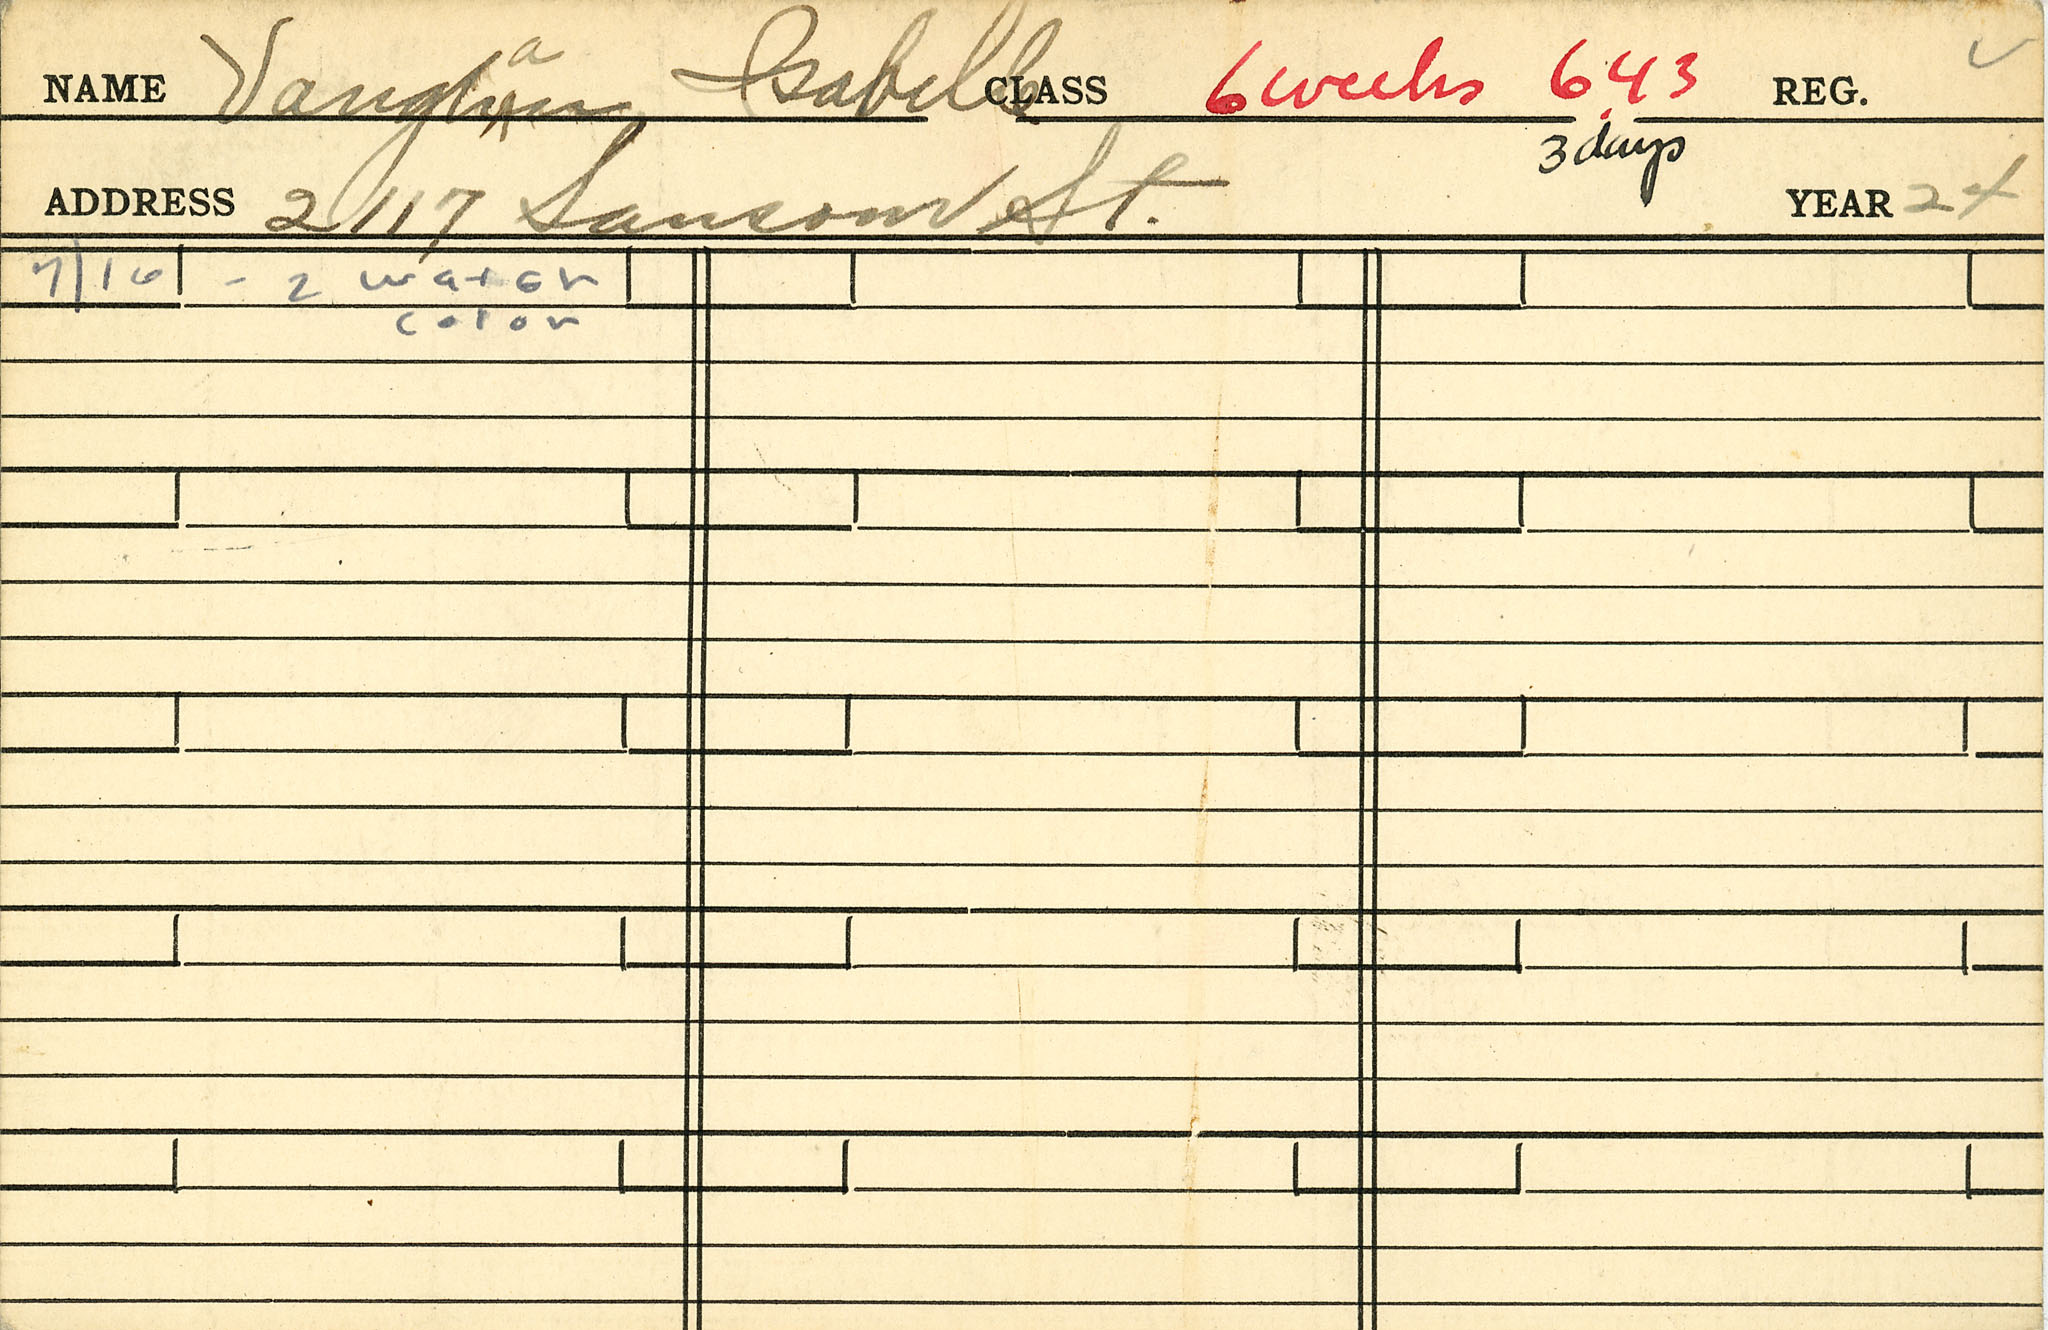 NAME Vaughan Isabelle CLASS 6 weeks 643 REG.
3 days
ADDRESS 2117 Sansom St. YEAR 24
7/16 - 2 water
color